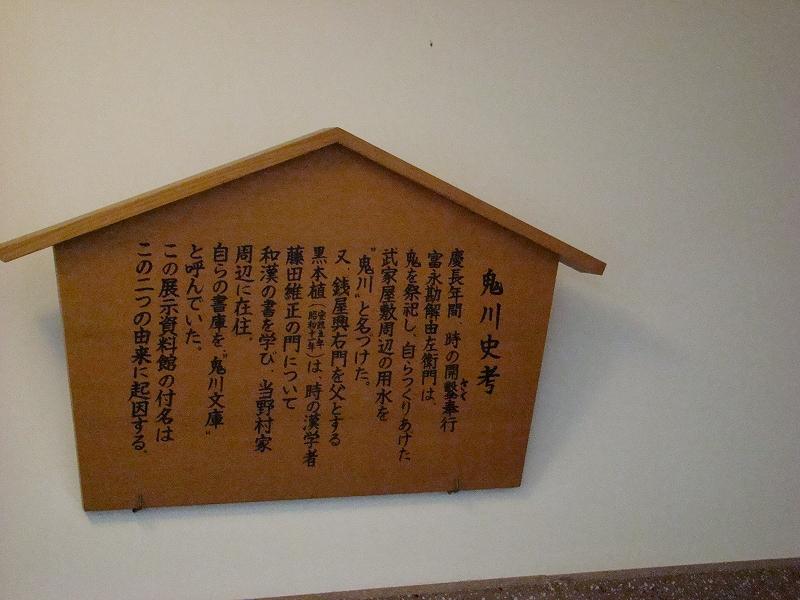 鬼川史考
慶長年間、時の開鑿奉行
さく
富永勘解由左衛門は
鬼を祭祀し、自らつくりあげた
武家屋敷周辺の用水を
〝鬼川〟と名づけた。
又、銭屋興右門を父とする
黒本植（安政五年 昭和十一年）は、時の漢学者
藤田維正の門について
和漢の書を学び、当野村家
周辺に在住、
自らの書庫を〝鬼川文庫〟
と呼んでいた。
この展示資料館の付名は
この二つの由来に起因する。